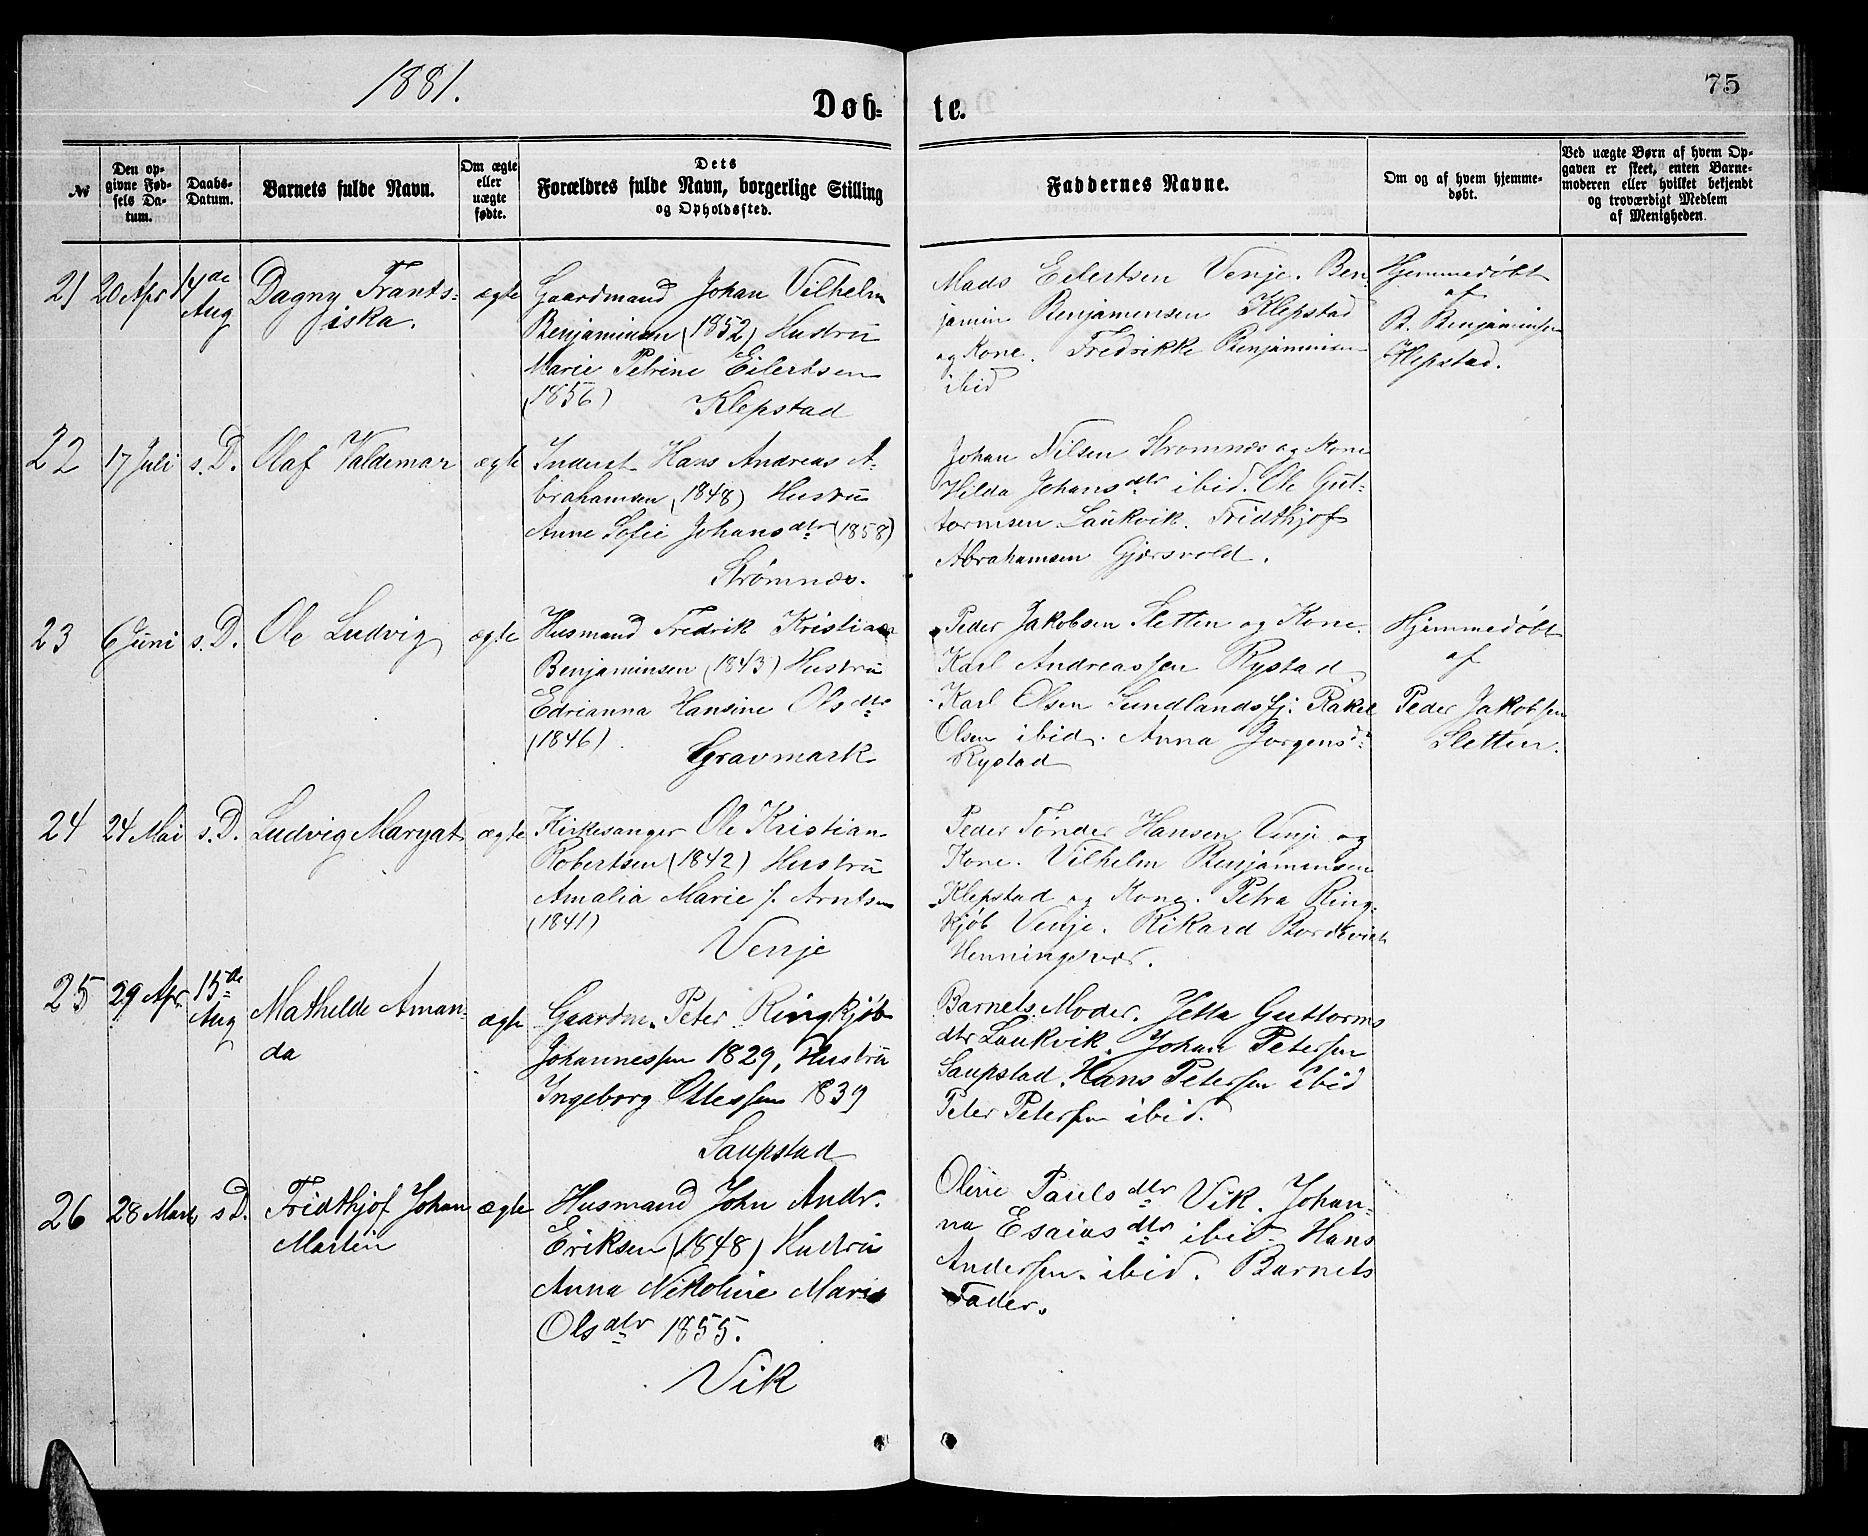 1881.
75
Døb-
te.
№
Den op-
givne Fød-
sels Da-
tum.
Daabs-
Datum.
Barnets fulde Navn.
Om ægte
eller
uægte
fødte.
Dets
Forældres fulde Navn, borgerlige Stilling
og Opholdssted.
Faddernes Navne.
Om og af hvem hjemme-
døbt.
Ved uægte Børn af hvem Op-
gaven er skeet, enten Barne-
moderen eller hvilket bekjendt
og troværdigt Medlem
af Menigheden.
21
20 Apr
14de
Aug
Dagny Frants-
iska.
ægte
Gaardmand Johan Vilhelm
Benjaminsen (1852) Hustru
Marie Petrine Eilertsen
(1856) Klepstad
Mads Eilertsen Venje. Ben-
jamin Benjamensen Klepstad
og Kone. Fredrikke Benjaminsen
ibid
Hjemmedøbt
af
B. Benjaminsen
Klepstad.
22
17 Juli
s. D.
Olaf Valdemar
ægte
Inderst Hans Andreas A-
brahamsen (1848) Hustru
Anne Sofie Johansdtr (1858)
Strømnæs.
Johan Nilsen Strømnæs og Kone
Hilda Johansdtr ibid. Ole Gut-
tormsen Laukvik. Fridthjof
Abrahamsen Gjersvold.
23
6 Juni
s. D.
Ole Ludvig
ægte
Husmand Fredrik Kristian
Benjaminsen (1843) Hustru
Edrianna Hansine Olsdtr
(1846).
Gravmark
Peder Jakobsen Sletten og Kone.
Karl Andreassen Rystad
Karl Olsen Sundlandsfj. Rakel
Olsen ibid. Anna Jorgensd.
Rystad
Hjemmedøbt
af
Peder Jakobsen
Sletten.
24
24 Mai
s. D.
Ludvig Maryat
ægte
Kirkesanger Ole Kristian
Robertsen (1842) Hustru
Amalia Marie f. Arntsen
(1841)
Venje
Peder Tønder Hansen Venje og
Kone. Vilhelm Benjamensen
Klepstad og Kone. Petra Ring-
kjøb Venje. Rikard Bordevick
Henningsvær.
25
29 Apr.
15de
Aug
Mathelde Aman-
da
ægte
Gaardm. Peter Ringkjøb
Johannessen 1829, Hustru
Ingeborg Ottessen 1839
Saupstad
Barnets Moder. Jetta Guttorms
dtr Laukvik. Johan Petersen
Saupstad. Hans Petersen ibid
Peter Petersen ibid.
26
28 Marts
s D.
Fridthjof Johan
Martin
ægte
Husmand John Andr.
Eriksen (1848) Hustru
Anna Nikoline Marie
Olsdtr 1855.
Vik
Oline Paulsdtr Vik. Johan-
na Esaiasdtr ibid. Hans
Andersen ibid. Barnets
Fader.